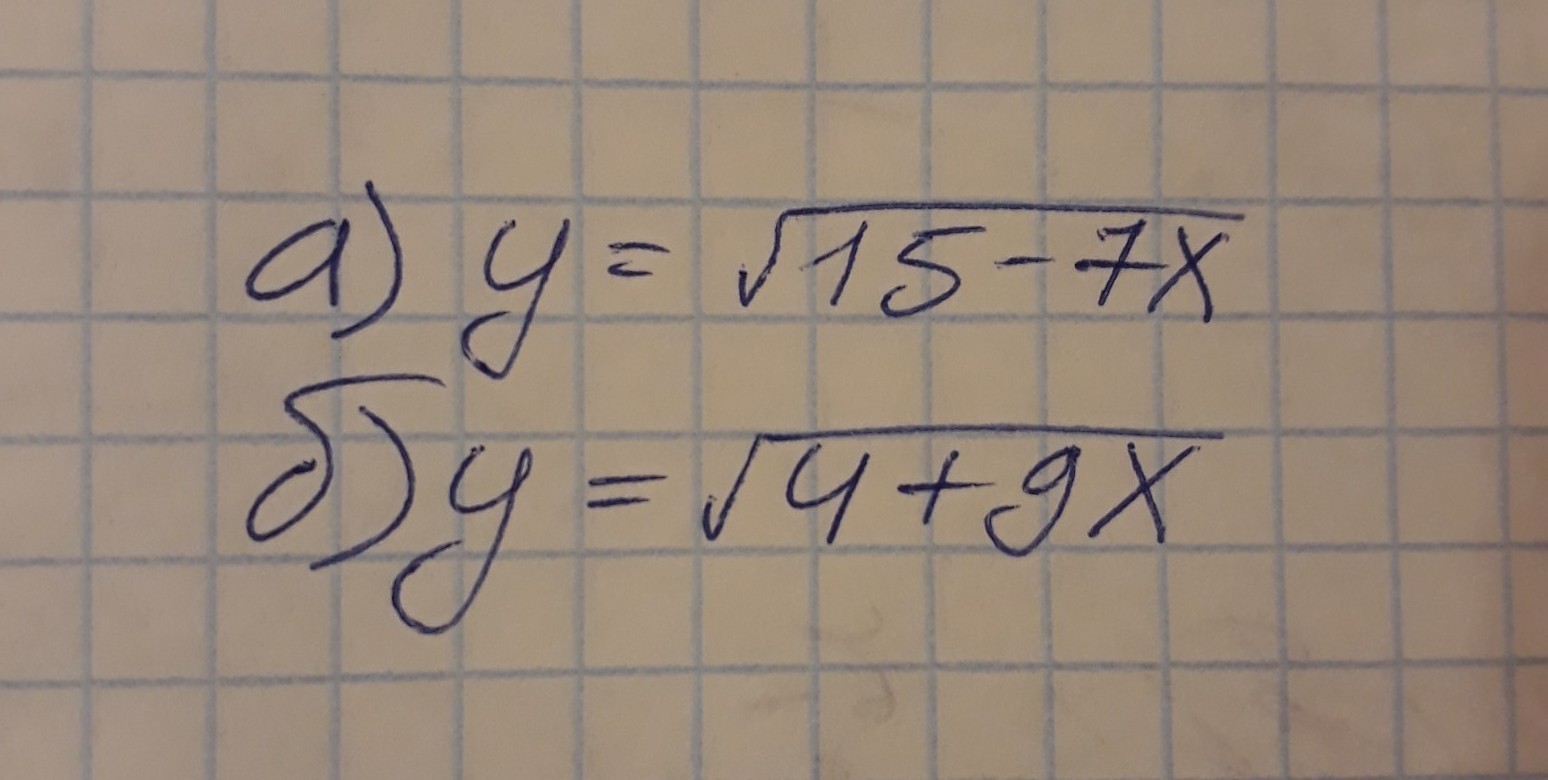 а) y = √15 - 7x
б) y = √4 + 9x